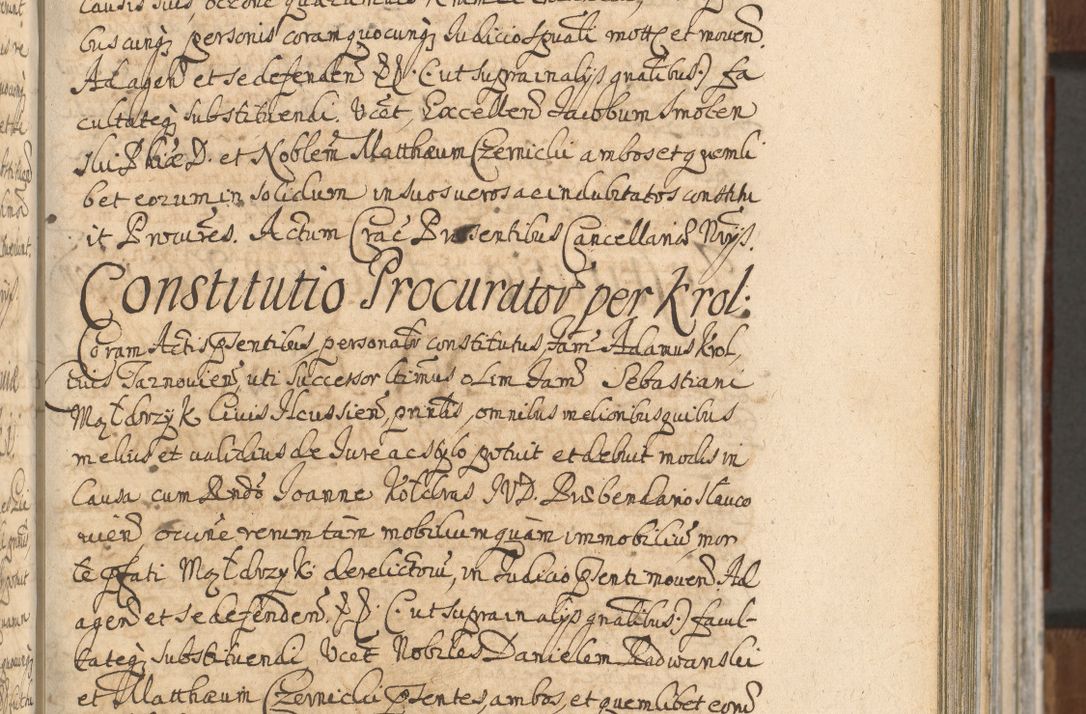 buscunq; personis coram quocunq; Judicio spuali mott et moven
Ad agen et se defenden &&. (: ut supra in alijs gnalibus :) fa
cultateq; substituendi. Ucet, Excellen Jacobum Smolen
ski Phiæ D. et Noblem Matthæum Czernicki ambos et quemli
bet eorum in solidum in suos veros ac indubitatos constitu
it Procures. Actum Crac Præsentibus Cancellariæ Nrijs.
Constitutio Procurator per Krol:
Coram Actis psentibus, personalr constitutus, Fam Adamus Krol,
Civis Tarnovien, uti successor ltimus olim Fam Sebastiani
Mązdrzyk Civis Ilcussien, pntis, omnibus melioribus quibus
melius et validius de Jure ac stylo potuit et debuit modis in
Causa cum Rndo Joanne Kołdras JVD. Præbendario Slavco
vien occne rerum tam mobilium quam immobiliu mor
te pfati Mązdrzyk derelictoru, in Judicio psenti moven. Ad
agen et se defenden. &&. (: ut supra in alijs gnalibus :) facul-
tateq; substituendi, Ucet Nobiles Danielem Radwanski
et Matthæum Czernicki psentes, ambos, et quemlibet eoru